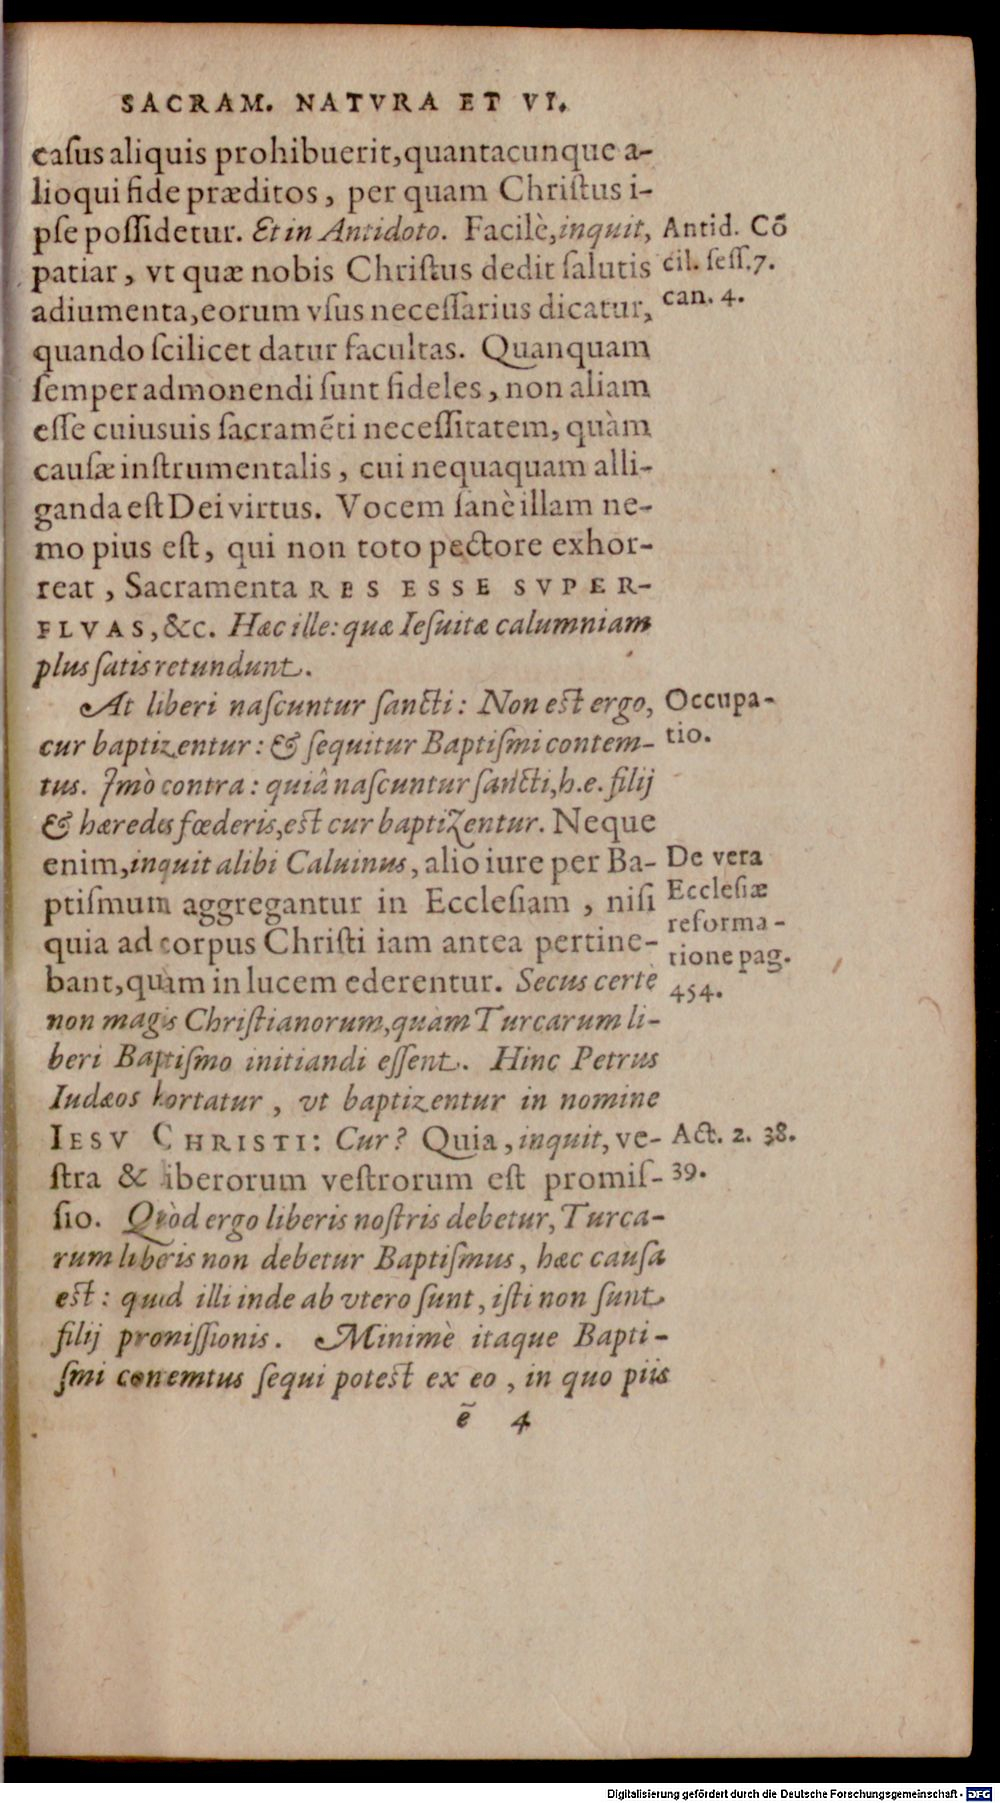 SACRAM. NATVRA ET VI.
caſus aliquis prohibuerit, quantacunque a-
lioqui fide præditos, per quam Chriſtus i-
pſe poſſidetur. Et in Antidoto. Facilè, inquit,
patiar, vt quæ nobis Chriſtus dedit ſalutis
adiumenta, eorum vſus neceſſarius dicatur,
quando ſcilicet datur facultas. Quanquam
ſemper admonendi ſunt fideles, non aliam
eſſe cuiusuis ſacramẽti neceſſitatem, quàm
cauſæ inſtrumentalis, cui nequaquam alli-
ganda eſt Dei virtus. Vocem ſanè illam ne-
mo pius eſt, qui non toto pectore exhor-
reat, Sacramenta RES ESSE SVPER-
FLVAS, &c. Hæc ille: quæ Ieſuitæ calumniam
plus ſatis retundunt.
Antid. Cõ
cil. ſeſſ. 7.
can. 4.
At liberi naſcuntur ſancti: Non est ergo,
cur baptizentur: & ſequitur Baptiſmi contem-
tus. Imò contra: quiâ naſcuntur ſancti, h.e. filij
& hæredes fœderis, est cur baptizentur. Neque
enim, inquit alibi Caluinus, alio iure per Ba-
ptiſmum aggregantur in Eccleſiam, niſi
quia ad corpus Chriſti iam antea pertine-
bant, quàm in lucem ederentur. Secus certe
non magis Chriſtianorum, quàm Turcarum li-
beri Baptiſmo initiandi eſſent. Hinc Petrus
Iudæos hortatur, vt baptizentur in nomine
IESV CHRISTI: Cur? Quia, inquit, ve-
ſtra & liberorum veſtrorum eſt promiſ-
ſio. Quòd ergo liberis noſtris debetur, Turca-
rum liberis non debetur Baptiſmus, hæc cauſa
est: quòd illi inde ab vtero ſunt, iſti non ſunt
filij promiſſionis. Minimè itaque Bapti-
ſmi contemtus ſequi potest ex eo, in quo piis
Occupa-
tio.
De vera
Eccleſiæ
reforma-
tione pag.
454.
Act. 2. 38.
39.
ẽ 4
Digitalisierung gefördert durch die Deutsche Forschungsgemeinschaft - DFG